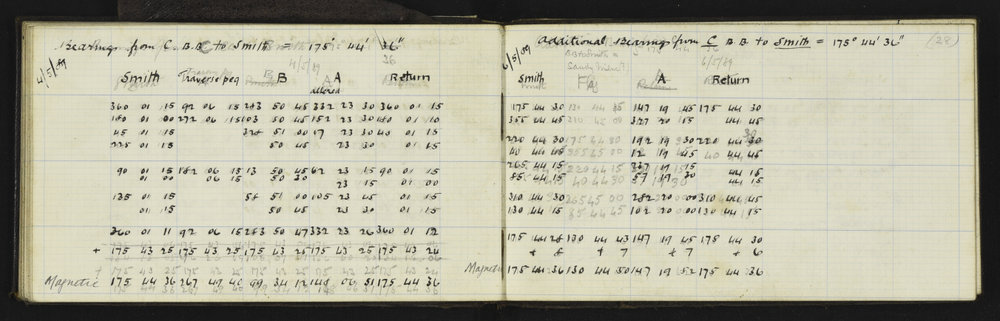 Bearings from C. B.B. to Smith = 175° 44' 36"
4/5/09
Smith Traverse peg B A Return
altered
360 01 15 92 06 15 283 50 45 332 23 30 360 01 15
180 01 00 272 06 15 103 50 45 152 23 30 180 01 10
45 01 15 328 51 00 17 23 30 45 01 15
225 01 15 50 45 23 30 01 15
90 01 15 182 06 15 13 50 45 62 23 15 90 01 15
01 00 06 15 50 30 23 15 01 00
135 01 15 58 51 00 105 23 45 01 15
01 15 50 45 23 30 01 15
360 01 11 92 06 15 283 50 47 332 23 26 360 01 12
+ 175 43 25 175 43 25 175 43 25 175 43 25 175 43 24
Magnetic 175 44 36 267 49 40 99 34 12 148 06 51 175 44 36
Additional Bearings from C B.B. to Smith = 175° 44' 36" (28)
6/5/09
Smith A Return
175 44 30 130 44 45 147 19 45 175 44 30
355 44 45 327 20 15 44 45
220 44 30 192 19 30 220 44 30
40 44 45 12 19 45 44 45
265 44 15 237 19 15 44 15
85 44 15 57 19 30 44 15
310 44 30 282 20 00 310 44 45
130 44 15 102 20 00 130 44 15
175 44 28 130 44 43 147 19 45 175 44 30
+ 8 + 7 + 7 + 6
Magnetic 175 44 36 130 44 50 147 19 52 175 44 36